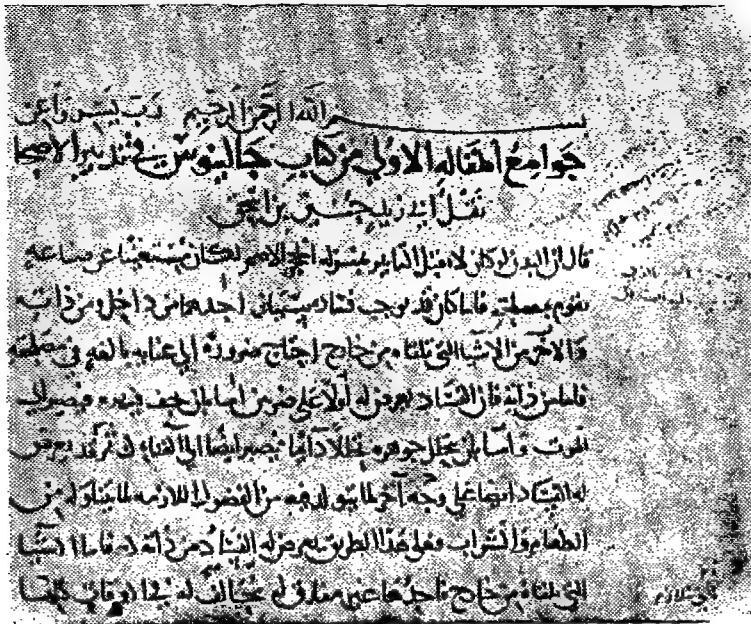 بسم الله الرحمن الرحيم رب يسر واعن
جوامع المقالة الاولى من كتاب جالينوس في تدبير الاصحا
نقل ابي زيد حنين بن اسحق
قال ان البدن لو كان لا يقبل التاثير بمنزلة الحجر الاصم لكان مستغنيا عن صناعة
تقوم بمصلحته فلما كان قد يوجب فساده سببان احدهما من داخل من ذاته
والاخر من الاشيا التي تلقاه من خارج احتاج ضرورة الى عناية بالغة في مصلحته
فاما من ذاته فان الفساد يعرض له اولا على ضربين اما بان يجف فيصير الى
الموت واما بان يتحلل جوهره تحللا دايما فيصير ايضا الى الفناء ثم قد يعرض
له الفساد ايضا على وجه آخر لما يتولد فيه من الفضول اللازمة لما يتناوله من
الطعام والشراب فعلى هذا الطريق يعرض له الفساد من ذاته فاما الاشيا
التي تلقاه من خارج فاحدها غير مفارق له في الاوقات كلها